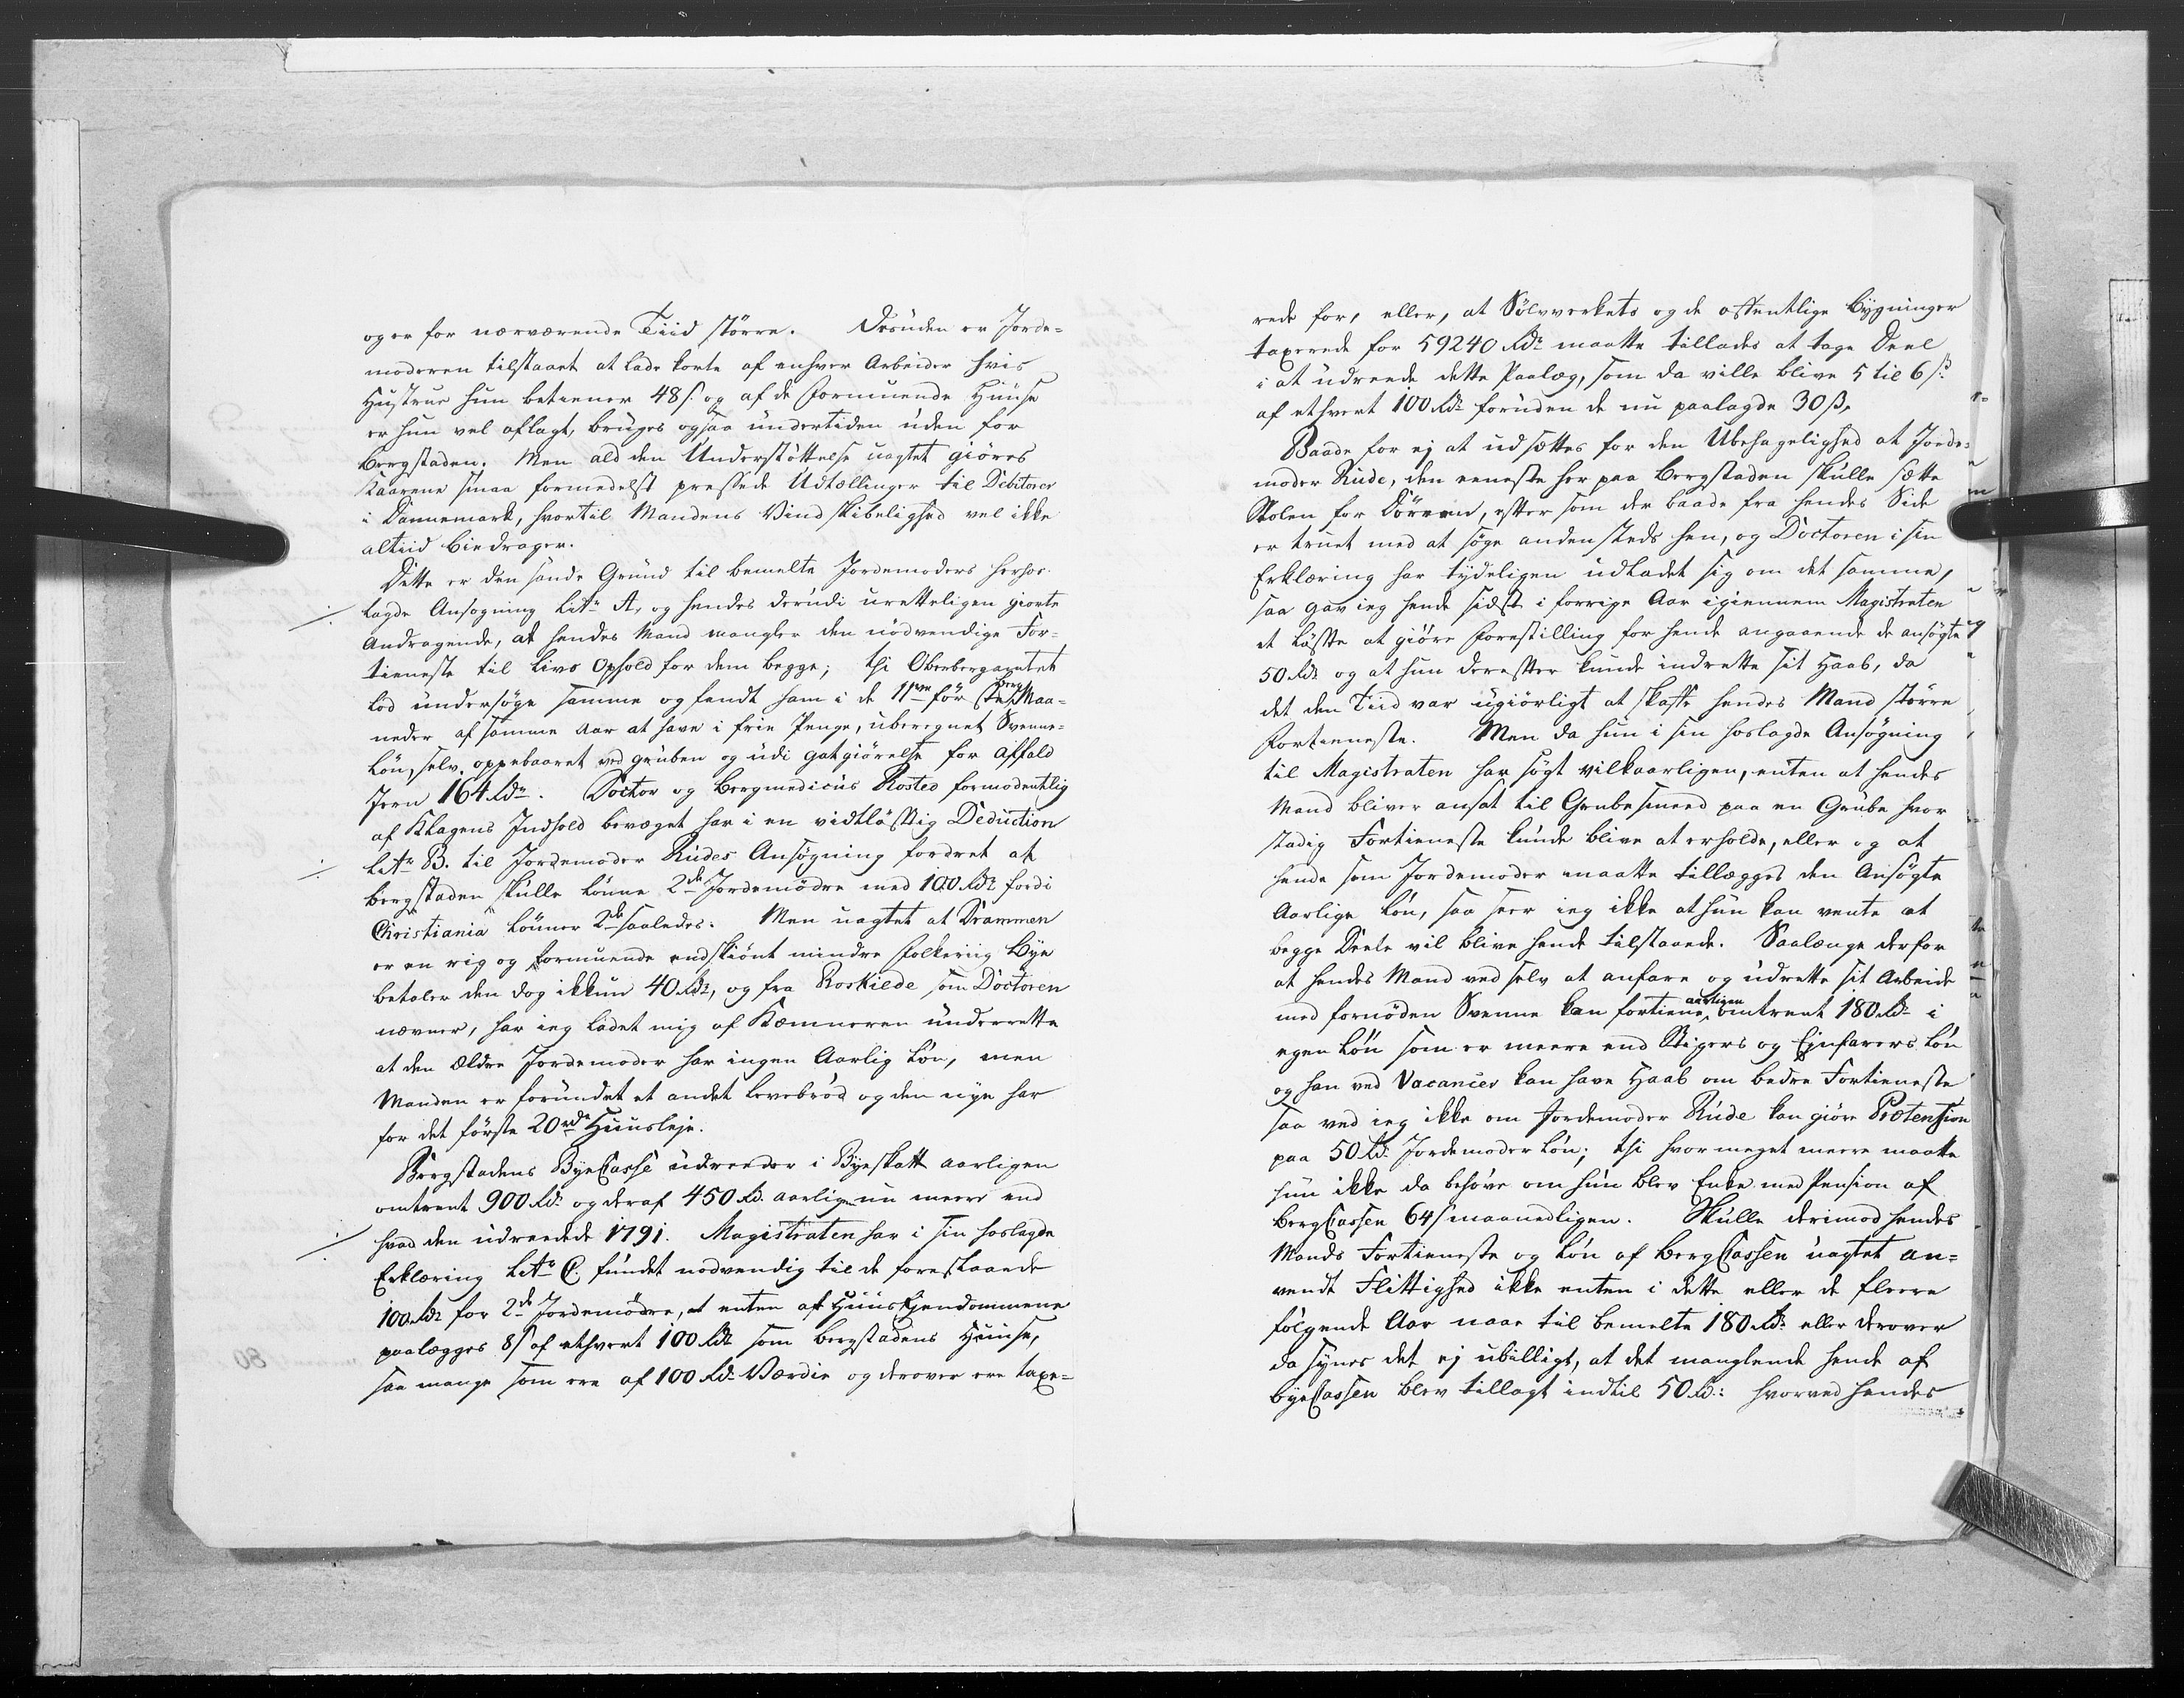 og er for nærværende Tiid större. Desuden er Jorde-
moderen tilstaaet at lade korte af enhver Arbeider hvis
Hustrue hun betiener 48 s. og af de Formuende Huuse
er hun vel aflagt, bruges ogsaa undertiden uden for
Bergstaden. Men ald den Understöttelse uagtet giöres
Kaarene smaa formedelst pressede Udtællinger til Debitorer
i Dannemark, hvortil Mandens Vindskibelighed vel ikke
altiid biedrager.
Dette er den sande Grund til bemelte Jordemoders herhos
lagde Ansøgning Litr A, og hendes derudi uretteligen giorte
Andragende, at hendes Mand mangler den nödvendige For-
tieneste til Livs Ophold for dem begge; thi Oberbergamtet
lod undersöge samme og fandt ham i de 11ve för Maa-
neder af samme Aar at have i frie Penge, uberegnet Svenne-
Lön, selv oppebaaret ved Gruben og udi Gotgiörelse for Affald
Jern 164 Rdr. Doctor og Bergmedicus Rosted formodentlig
af Klagens Indhold bevæget har i en vidtlöftig Deduction
Litr B. til Jordemoder Rudes Ansögning fordret at
Bergstaden skulle lönne 2de Jordemödre med 100 Rdr fordi
Christiania lönner 2de saaledes. Men uagtet at Drammen
er en rig og formuende endskiönt mindre folkeriig Bye
betaler den dog ikkun 40 Rdr, og fra Roskilde som Doctoren
nævner, har ieg ladet mig af Kæmneren underrette
at den ældre Jordemoder har ingen Aarlig Lön, men
Manden er forundet et andet Levebröd og den nye har
for det förste 20 rdr Huusleje.
Bergstadens ByeCasse udreeder i Byeskatt aarligen
omtrent 900 Rdr og deraf 450 Rd. aarligen nu meere end
hvad den udreedede 1791. Magistraten har i sin hoslagde
Erklæring Litr C. fundet nødvendig til de forestaaende
100 Rdr for 2de Jordemødre, at enten af Huus Ejendommene
paalægges 8 s af ethvert 100 Rdr som Bergstadens Huuse,
saa mange som ere af 100 Rdr Værdie og derover ere taxe-
rede for, eller, at Sölvverkets og de offentlige Bygninger
taxerede for 59240 Rdr maatte tillades at tage Deel
i at udreede dette Paalæg, som da ville blive 5 til 6 s
af ethvert 100 Rdr foruden de nu paalagde 30 ß.
Baade for ej at udsættes for den Ubehagelighed at Jorde-
moder Rude, den eeneste her paa Bergstaden skulle sætte
Stolen for Dörren, efter som der baade fra hendes Side
er truet med at söge andensteds hen, og Doctoren i sin
Erklæring har tydeligen udladet sig om det samme,
saa gav ieg hende sidst i forrige Aar igiennem Magistraten
et Löfte at giöre Forestilling for hende angaaende de ansögte
50 Rdr og at hun derefter kunde indrette sit Haab, da
det den Tiid var ugiörligt at skaffe hendes Mand större
Fortieneste. Men da hun i sin hoslagde Ansögning
til Magistraten har sögt vilkaarligen, enten at hendes
Mand bliver ansat til Grubesmeed paa en Grube hvor
stadig Fortieneste kunde blive at erholde, eller og at
hende som Jordemoder maatte tillægges den Ansögte
Aarlige Lön, saa seer ieg ikke at hun kan vente at
begge Deele vil blive hende tilstaaede. Saalænge derfor
at hendes Mand ved selv at anfare og udrette sit Arbeide
med fornöden Svenne kan fortiene aarligen omtrent 180 Rdr i
egen Lön som er meere end Stigers og Ejnfarers Lön
og han ved Vacancer kan have Haab om bedre Fortieneste
saa ved ieg ikke om Jordemoder Rude kan giöre Prætension
paa 50 Rd. Jordemoder Lön; thi hvor meget meere maatte
hun ikke da behöve om hun blev Enke med Pension af
BergCassen 64 s maanedligen. Skulle derimod hendes
Mands Fortieneste og Lön af BergCassen uagtet an-
vendt Flittighed ikke enten i dette eller de fleere
fölgende Aar naae til bemelte 180 Rdr eller derover
da synes det ej ubilligt, at det manglende hende af
ByeCassen blev tillagt indtil 50 Rd: hvorved hendes